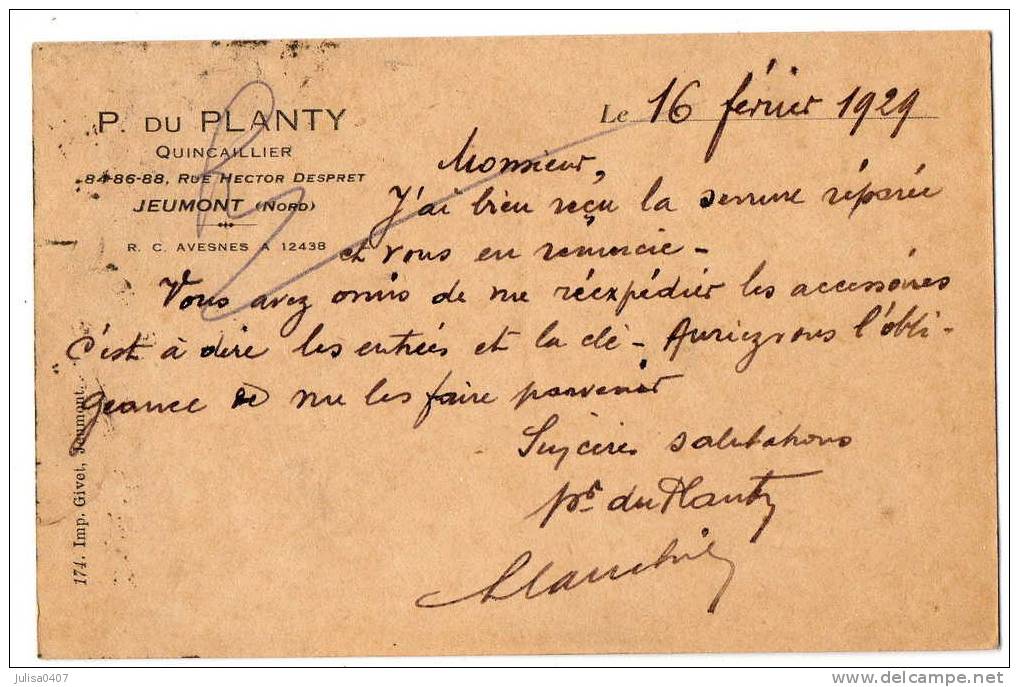 P. DU PLANTY
QUINCAILLIER
84-86-88, RUE HECTOR DESPRET
JEUMONT (NORD)
R. C. AVESNES A 12438
Le 16 février 1929
Monsieur,
J'ai bien reçu la serrure réparée
et vous en remercie -
Vous avez omis de me réexpédier les accessoires
c'est à dire les entrées et la clé - Auriez vous l'obli-
geance de me les faire parvenir
Sincères salutations
pr. du Planty
174. Imp. Givet, Jeumont.
julisa0407
www.delcampe.net